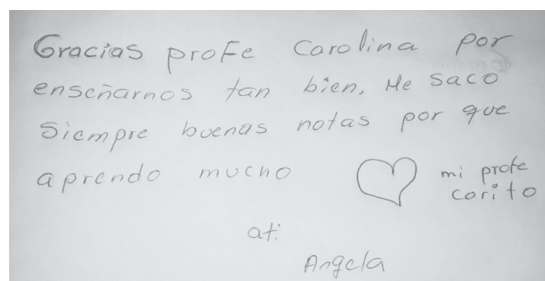 Gracias profe Carolina por
enseñarnos tan bien. Me saco
siempre buenas notas por que
aprendo mucho
mi profe
carito
at:
Angela